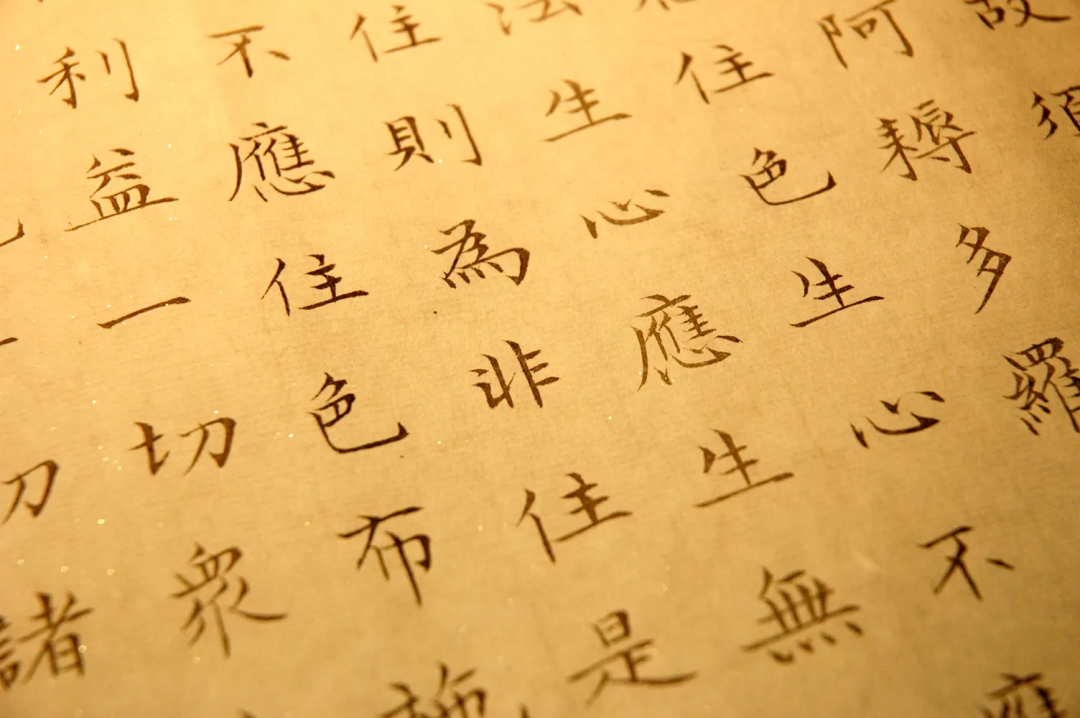 故須
阿耨多羅
住色生心不應
法生心應生無
住則為非住是
不應住色布施
利益一切衆
切諸